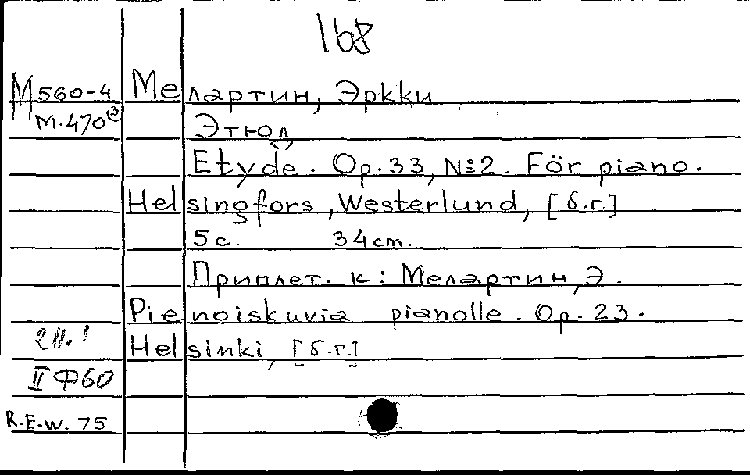 168
M 560-4 Мелартин, Эркки
М.470(3)
Этюд
Etyde. Op.33, №2. För piano.
Helsingfors, Westerlund, [б.г.]
5с. 34cm.
Приплет. к: Мелартин, Э.
Pienoiskuvia pianolle. Op. 23.
Helsinki, [б.г.]
II Ф60
R.E.W. 75